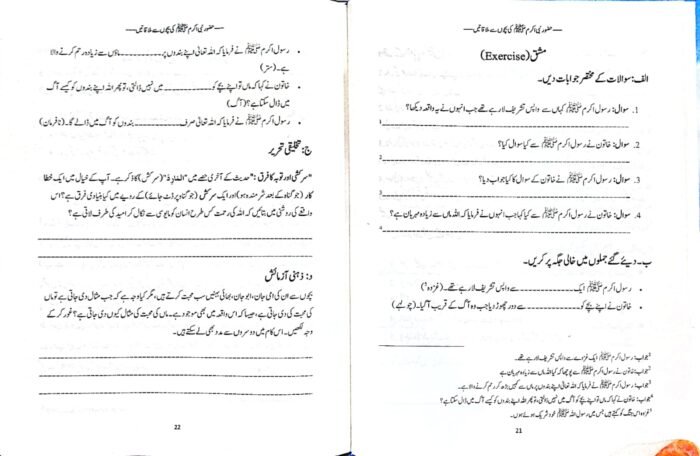 —حضور نبی اکرم ﷺ کی بچوں سے ملاقاتیں—
مشق (Exercise)
الف: سوالات کے مختصر جوابات دیں۔
1. سوال: رسول اکرم ﷺ کہاں سے واپس تشریف لا رہے تھے جب انہوں نے یہ واقعہ دیکھا؟
1
2. سوال: خاتون نے رسول اکرم ﷺ سے کیا سوال کیا؟
2
3. سوال: رسول اکرم ﷺ نے خاتون کے سوال کا کیا جواب دیا؟
3
4. سوال: خاتون نے رسول اکرم ﷺ سے کیا کہا جب انہوں نے فرمایا کہ اللہ ماں سے زیادہ مہربان ہے؟
4
ب۔ دیئے گئے جملوں میں خالی جگہ پر کریں۔
• رسول اکرم ﷺ ایک ____________ سے واپس تشریف لا رہے تھے۔ (غزوہ⁵)
• خاتون نے اپنے بچے کو ____________ سے دور چھوڑ دیا جب وہ آگ کے قریب آ گیا۔ (چولہے)
¹جواب: رسول اکرم ﷺ ایک غزوے سے واپس تشریف لا رہے تھے۔
²جواب: خاتون نے رسول اکرم ﷺ سے پوچھا کہ کیا اللہ ماں سے زیادہ مہربان ہے
³جواب: رسول اکرم ﷺ نے فرمایا کہ اللہ تعالیٰ اپنے بندوں پر ماں سے کہیں بڑھ کر رحم کرنے والا ہے۔
⁴جواب: خاتون نے کہا کہ ماں تو اپنے بچے کو آگ میں نہیں ڈالتی، تو پھر اللہ اپنے بندوں کو کیسے آگ میں ڈال سکتا ہے؟
⁵غزوہ اس جنگ کو کہتے ہیں جس میں رسول اللہ ﷺ خود شریک ہوئے ہوں۔
21
—حضور نبی اکرم ﷺ کی بچوں سے ملاقاتیں—
• رسول اکرم ﷺ نے فرمایا کہ اللہ تعالیٰ اپنے بندوں پر ____________ ماؤں سے زیادہ رحم کرنے والا
ہے۔ (ستر)
• خاتون نے کہا کہ ماں تو اپنے بچے کو ____________ میں نہیں ڈالتی، تو پھر اللہ اپنے بندوں کو کیسے آگ
میں ڈال سکتا ہے؟ (آگ)
• رسول اکرم ﷺ نے فرمایا کہ اللہ تعالیٰ صرف ____________ بندوں کو آگ میں ڈالے گا۔ (نافرمان)
ج: تخلیقی تحریر
"سرکشی اور توبہ کا فرق": "حدیث کے آخری حصے میں "المارد" (سرکش) کا ذکر ہے۔ آپ کے خیال میں ایک خطا
کار (جو گناہ کے بعد شرمندہ ہو) اور ایک سرکش (جو گناہ پر ڈٹ جائے) کے رویے میں کیا بنیادی فرق ہے؟ اس
واقعے کی روشنی میں بتائیں کہ اللہ کی رحمت کس طرح انسان کو مایوسی سے نکال کر امید کی طرف لاتی ہے؟
د: ذہنی آزمائش
بچوں سے ان کی امی جان، ابو جان، بھائی بہنیں سب محبت کرتے ہیں، مگر کیا وجہ ہے کہ جب مثال دی جاتی ہے تو ماں
کی محبت کی دی جاتی ہے، جیسا کہ اس واقعہ میں بھی موجود ہے۔ ماں کی محبت کی مثال کیوں دی جاتی ہے؟ غور کر کے
وجہ لکھیں۔ اس کام میں دوسروں سے مدد بھی لے سکتے ہیں۔
22